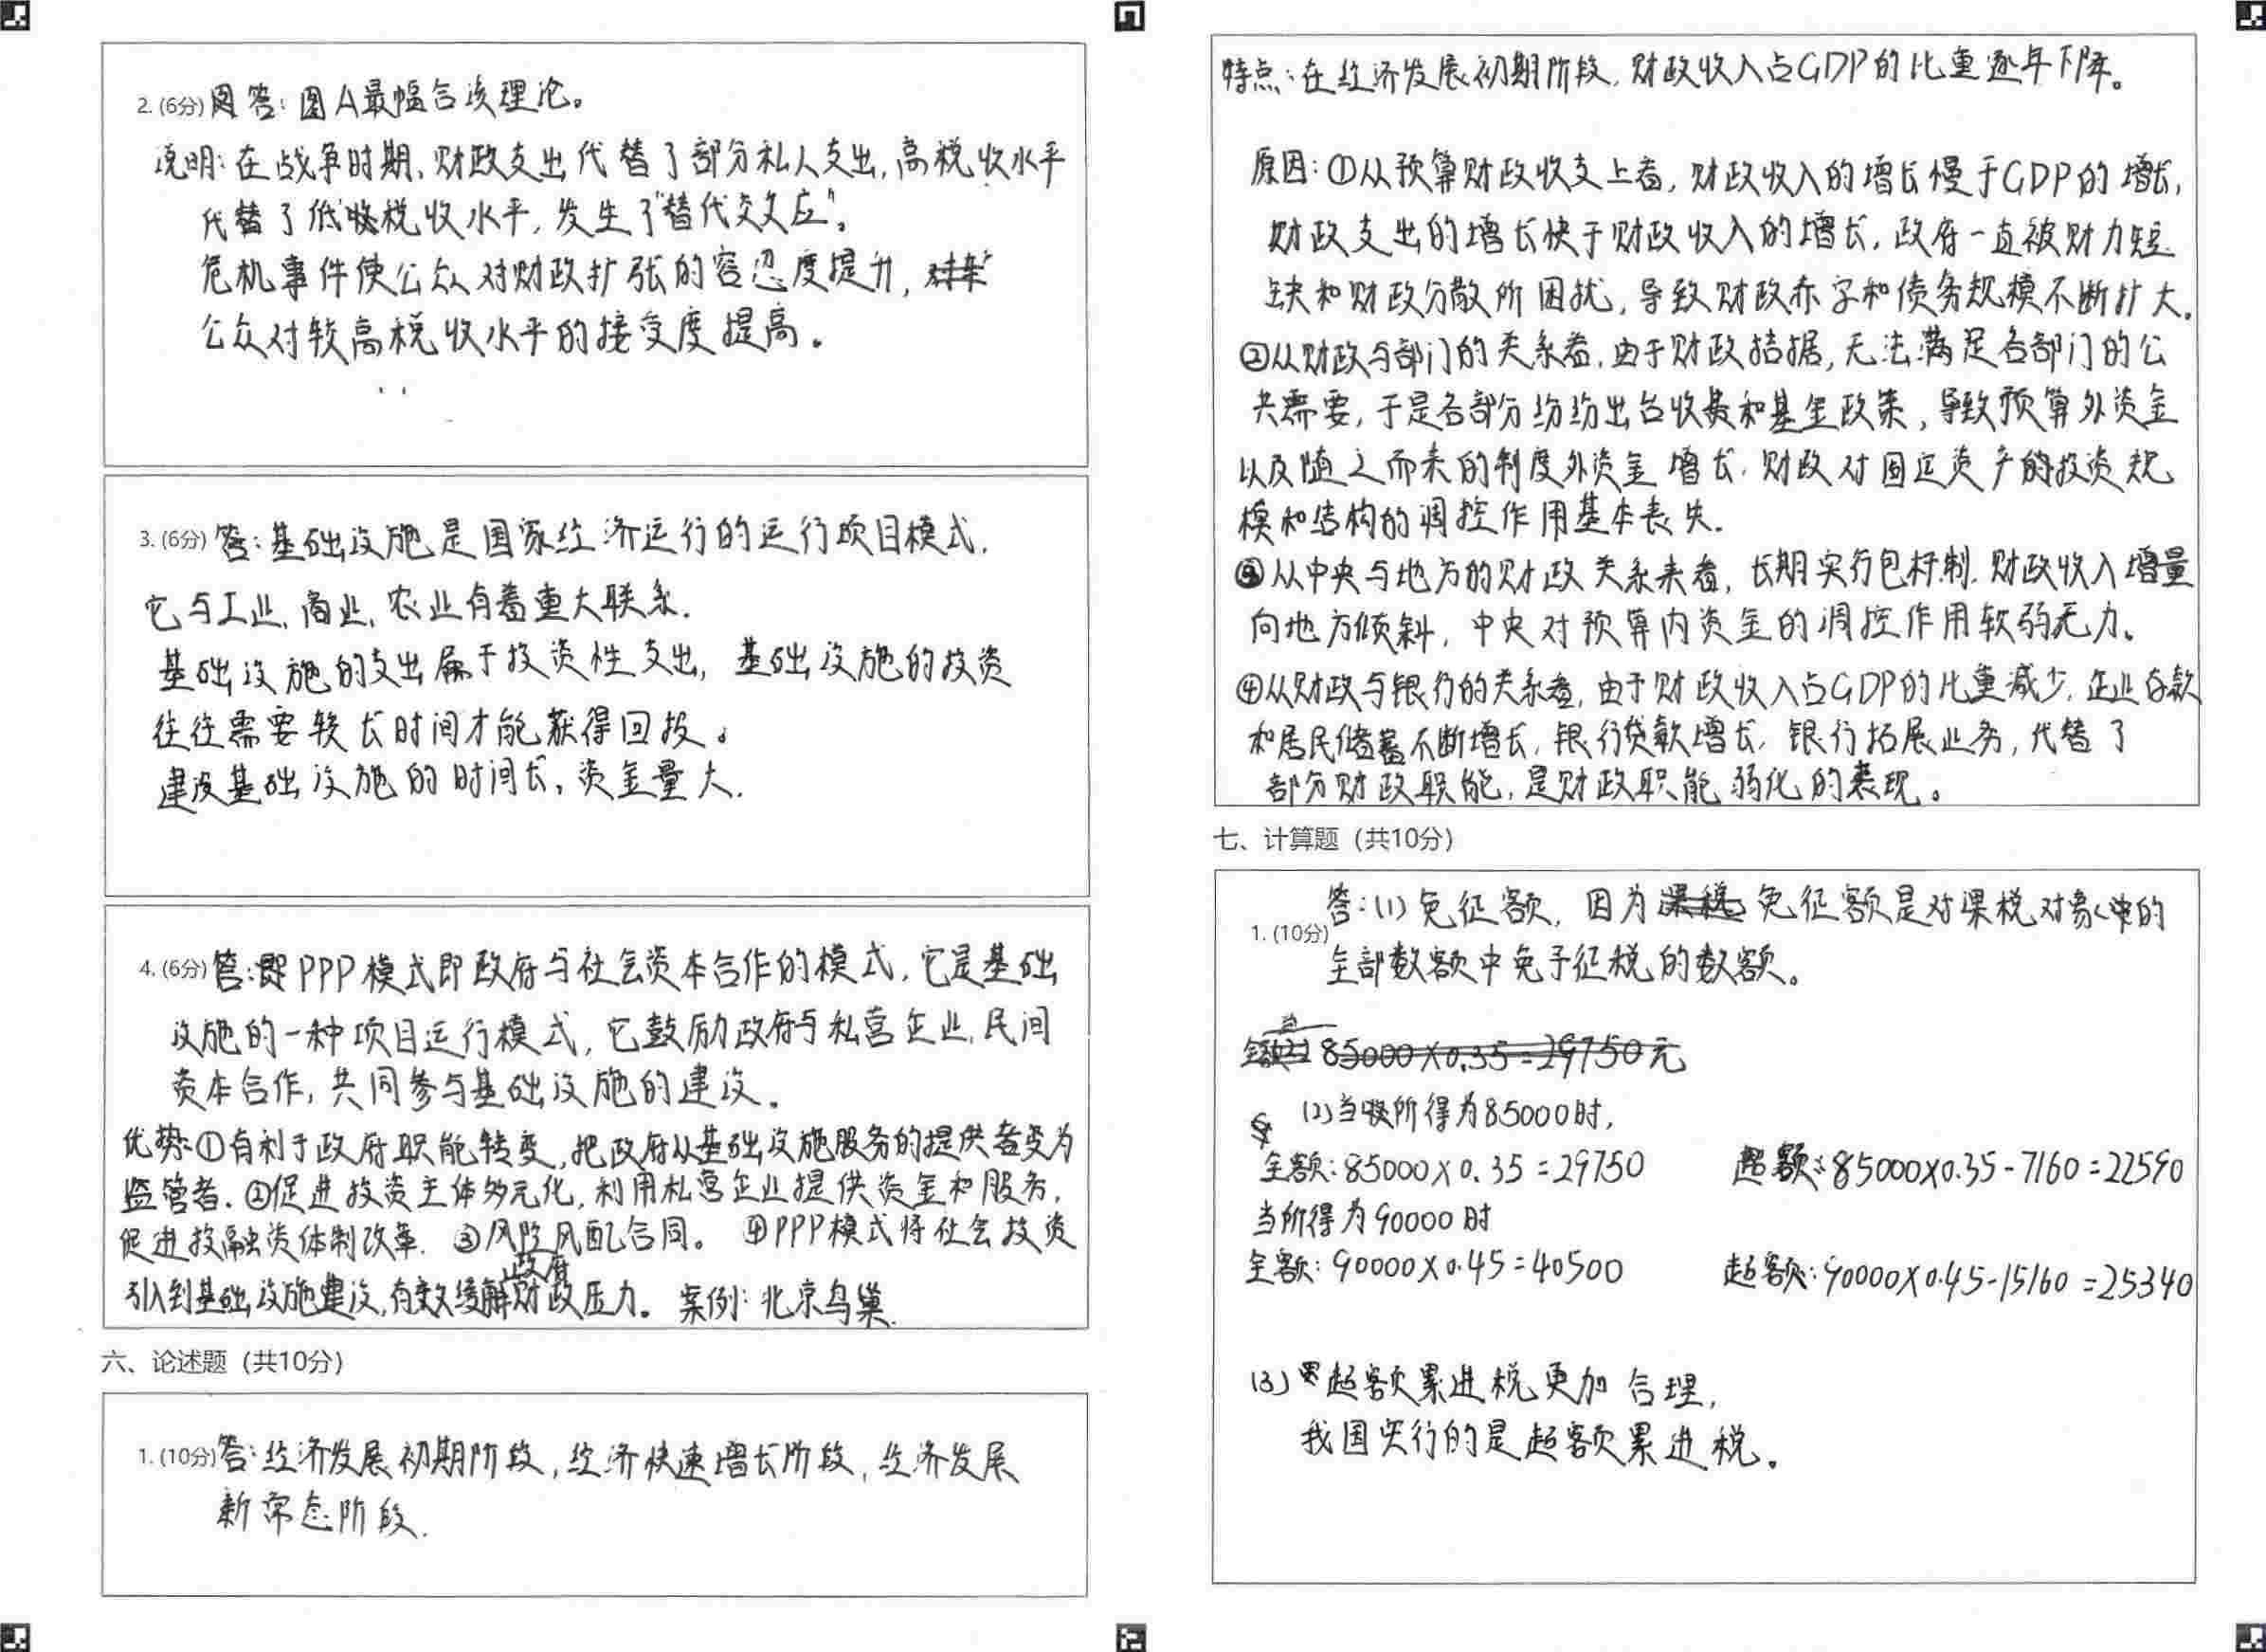 2. (6分) 答: 图A最幅合该理论。
说明: 在战争时期, 财政支出代替了部分私人支出, 高税收水平
代替了低税收水平, 发生了"替代效应"。
危机事件使公众对财政扩张的容忍度提升,
公众对较高税收水平的接受度提高。
3. (6分) 答: 基础设施是国家经济运行的运行项目模式.
它与工业, 商业, 农业有着重大联系.
基础设施的支出属于投资性支出, 基础设施的投资
往往需要较长时间才能获得回报。
建设基础设施的时间长, 资金量大.
4. (6分) 答: PPP模式即政府与社会资本合作的模式, 它是基础
设施的一种项目运行模式, 它鼓励政府与私营企业, 民间
资本合作, 共同参与基础设施的建设.
优势: ①有利于政府职能转变, 把政府从基础设施服务的提供者变为
监管者. ②促进投资主体多元化, 利用私营企业提供资金和服务,
促进投融资体制改革. ③风险风配合同。 ④PPP模式将社会投资
引入到基础设施建设, 有效缓解政府财政压力。 案例: 北京鸟巢.
六、论述题（共10分）
1. (10分) 答: 经济发展初期阶段, 经济快速增长阶段, 经济发展
新常态阶段.
特点: 在经济发展初期阶段, 财政收入占GDP的比重逐年下降。
原因: ①从预算财政收支上看, 财政收入的增长慢于GDP的增长,
财政支出的增长快于财政收入的增长, 政府一直被财力短
缺和财政分散所困扰, 导致财政赤字和债务规模不断扩大.
②从财政与部门的关系看, 由于财政拮据, 无法满足各部门的公
共需要, 于是各部分纷纷出台收费和基金政策, 导致预算外资金
以及随之而来的制度外资金增长. 财政对固定资产的投资规
模和结构的调控作用基本丧失.
③从中央与地方的财政关系来看, 长期实行包干制, 财政收入增量
向地方倾斜, 中央对预算内资金的调控作用软弱无力。
④从财政与银行的关系看, 由于财政收入占GDP的比重减少, 企业存款
和居民储蓄不断增长, 银行贷款增长, 银行拓展业务, 代替了
部分财政职能, 是财政职能弱化的表现。
七、计算题（共10分）
1. (10分) 答: (1) 免征额, 因为免征额是对课税对象中的
全部数额中免予征税的数额。
85000×0.35=29750元
(2) 当所得为85000时,
全额: 85000×0.35=29750 超额: 85000×0.35-7160=22590
当所得为90000时
全额: 90000×0.45=40500 超额: 90000×0.45-15160=25340
(3) 超额累进税更加合理,
我国实行的是超额累进税。